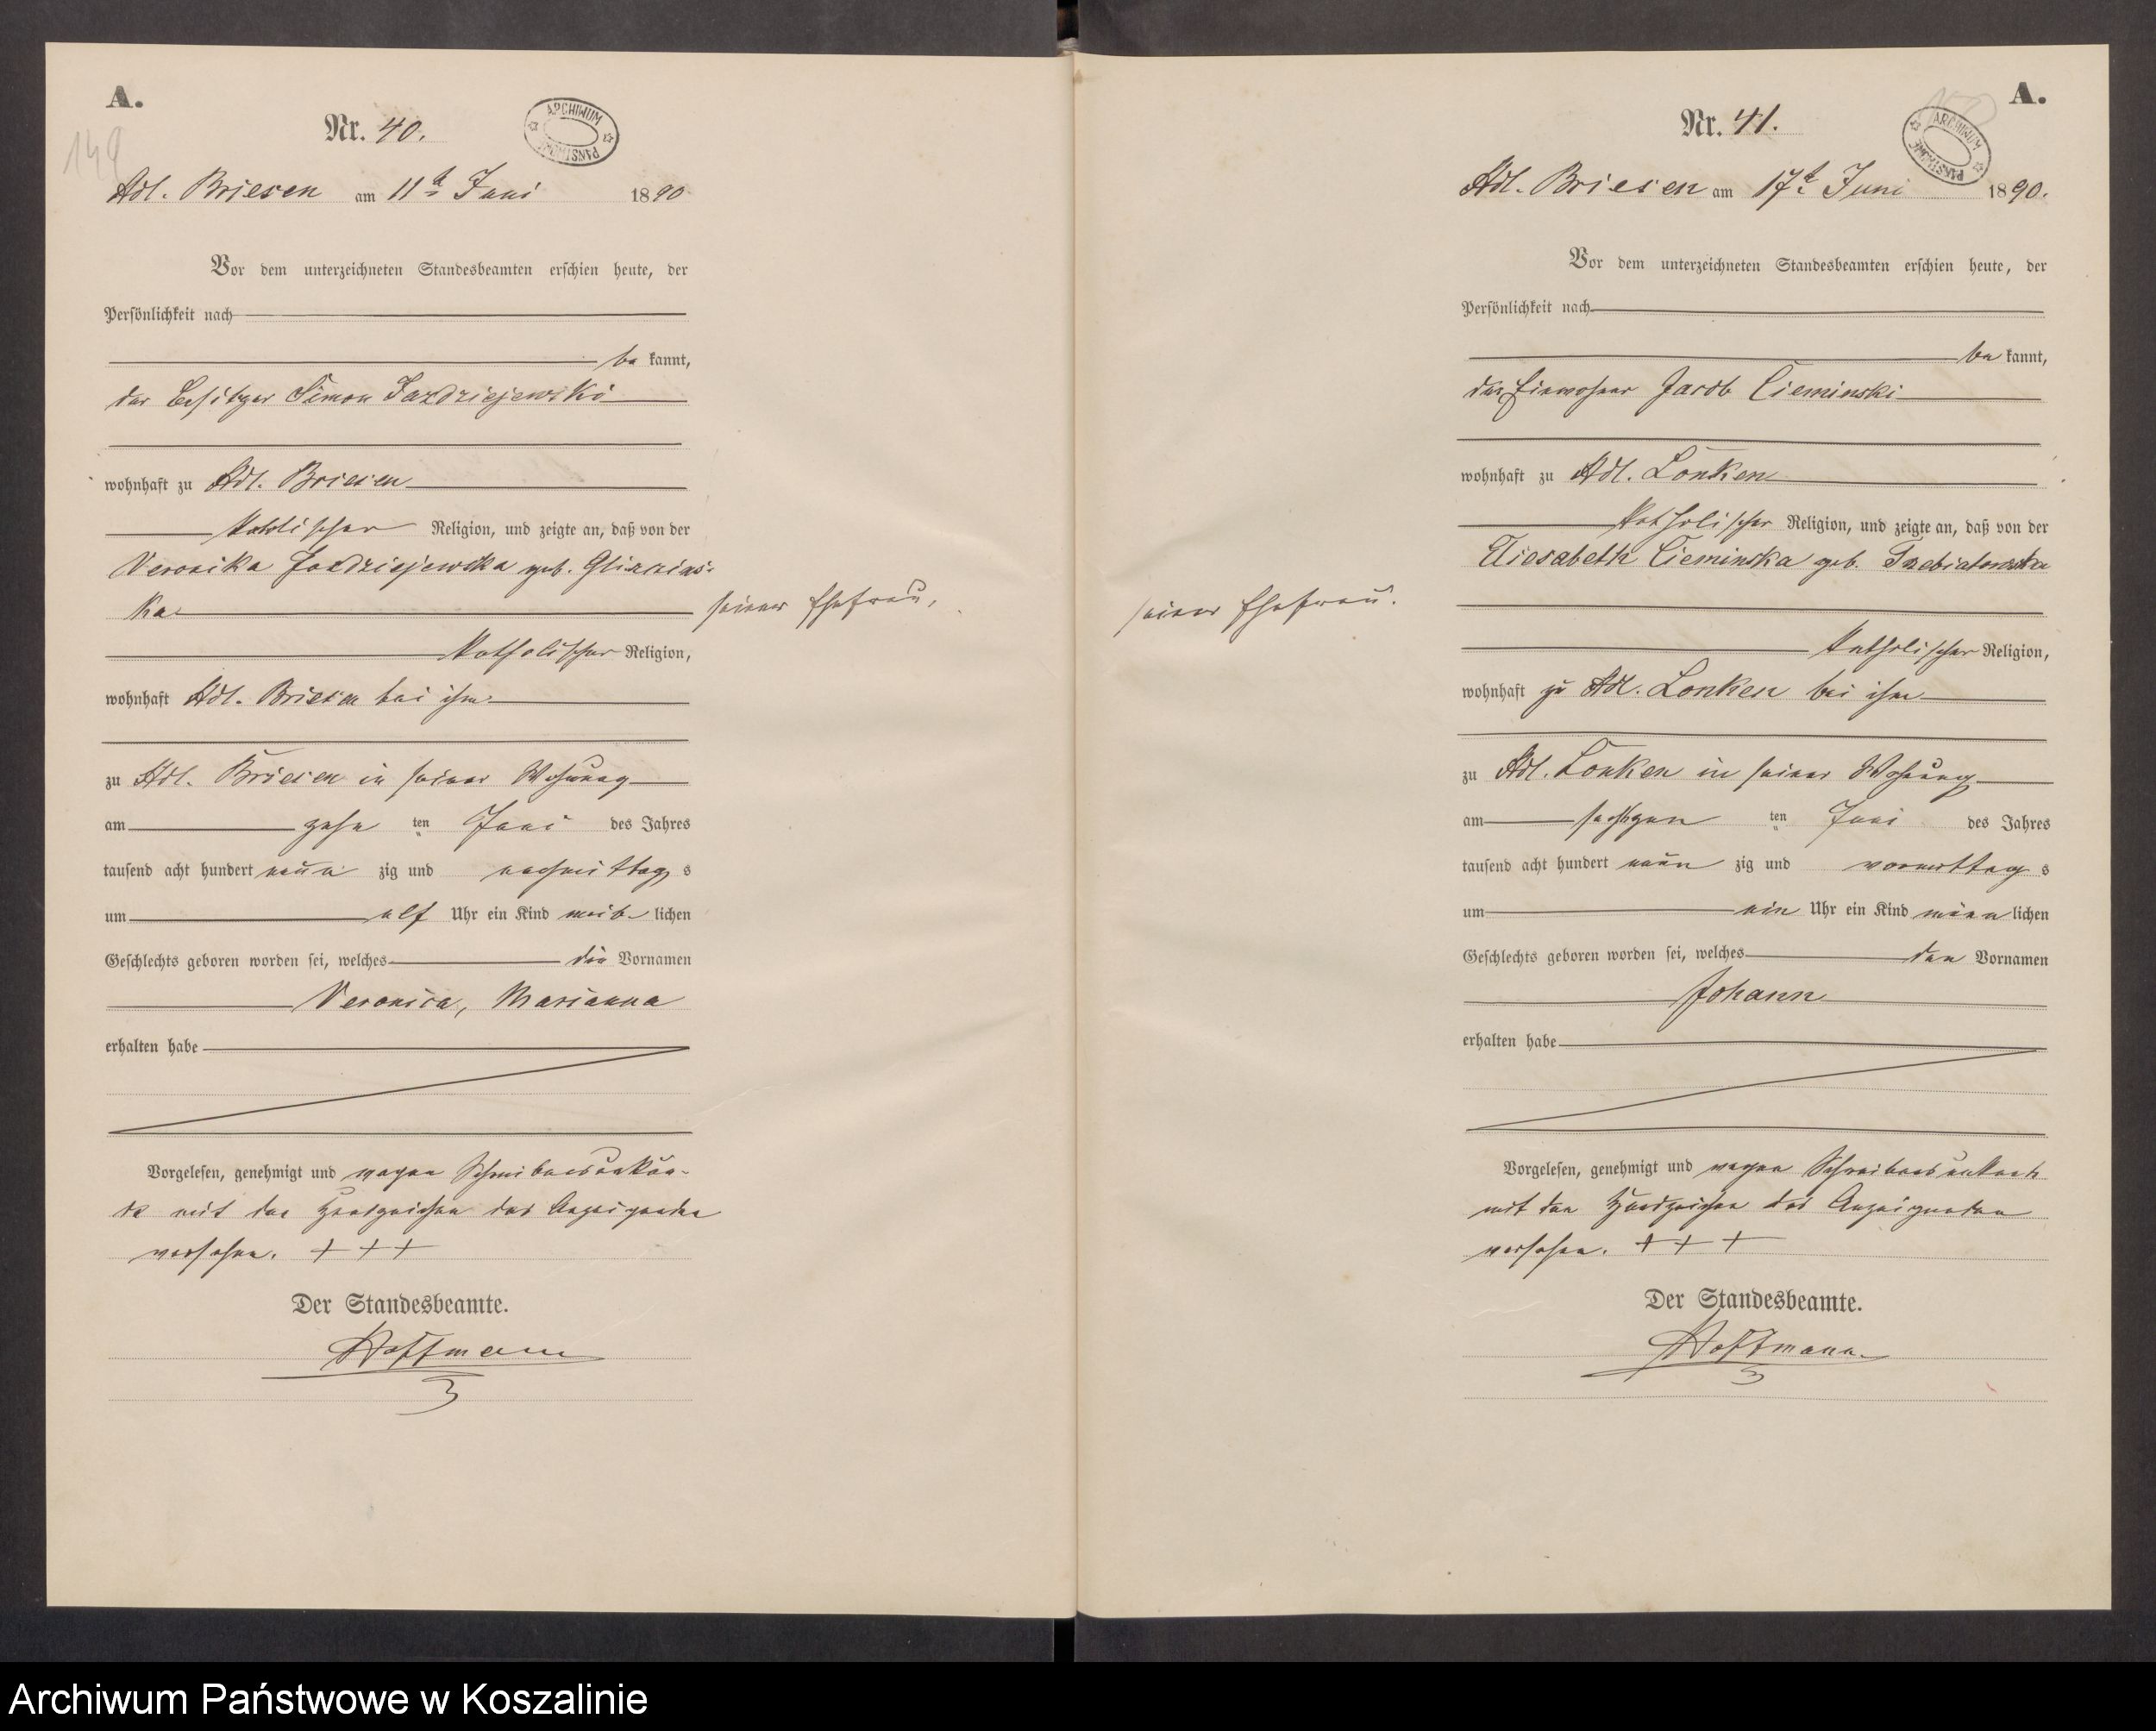 A.
149
Nr. 40.
ARCHIWUM PAŃSTWOWE
Adl. Briesen am 11t Juni 1890
Vor dem unterzeichneten Standesbeamten erschien heute, der
Persönlichkeit nach
be kannt,
der Besitzer Simon Jazdziejewski
wohnhaft zu Adl. Briesen
katholischer Religion, und zeigte an, daß von der
Veronika Jazdziejewska geb.
ka seiner Ehefrau,
katholischer Religion,
wohnhaft Adl. Briesen bei ihm
zu Adl. Briesen in seiner Wohnung
am zehn ten Juni des Jahres
tausend acht hundert neun zig und nachmittag s
um elf Uhr ein Kind weib lichen
Geschlechts geboren worden sei, welches die Vornamen
Veronica, Marianna
erhalten habe
Vorgelesen, genehmigt und wegen Schreibensunkun-
de mit den Handzeichen des Anzeigenden
versehen. + + +
Der Standesbeamte.
Hoffmann
A.
150
Nr. 41.
ARCHIWUM PAŃSTWOWE
Adl. Briesen am 17t. Juni 1890.
Vor dem unterzeichneten Standesbeamten erschien heute, der
Persönlichkeit nach
be kannt,
der Einwohner Jacob Cieminski
wohnhaft zu Adl. Lonken
katholischer Religion, und zeigte an, daß von der
Eliesabeth Cieminska geb. Trzebiatowska
seiner Ehefrau.
katholischer Religion,
wohnhaft zu Adl. Lonken bei ihm
zu Adl. Lonken in seiner Wohnung
am sechszen ten Juni des Jahres
tausend acht hundert neun zig und vormittag s
um ein Uhr ein Kind männ lichen
Geschlechts geboren worden sei, welches den Vornamen
Johann
erhalten habe
Vorgelesen, genehmigt und wegen Schreibensunkunde
mit den Handzeichen des Anzeigenden
versehen. + + +
Der Standesbeamte.
Hoffmann.
Archiwum Państwowe w Koszalinie